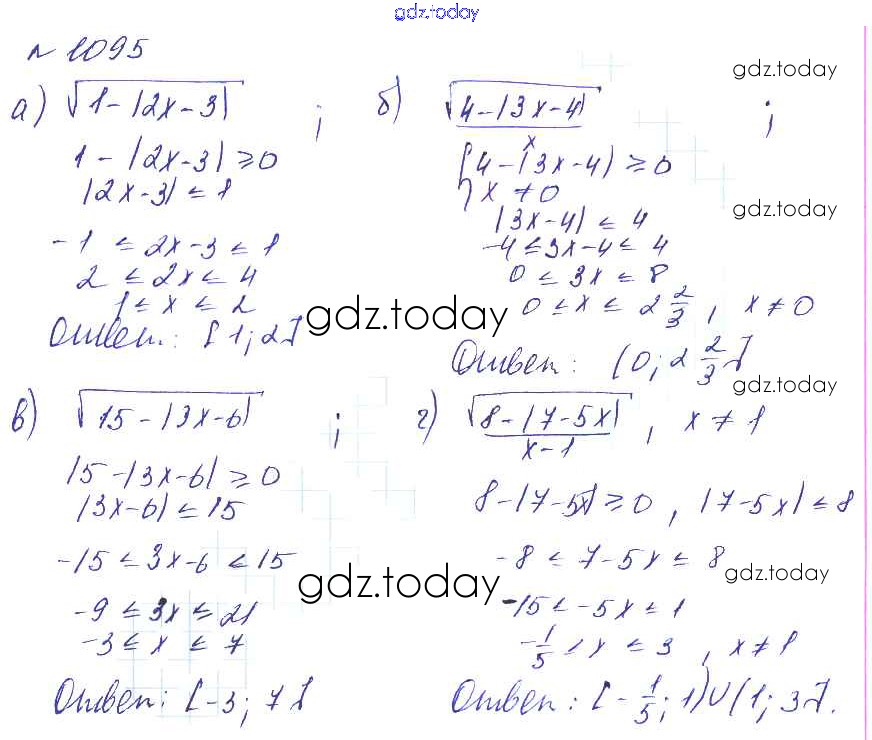 gdz.today
№ 1095
а) √(1-|2x-3|) ;
1-|2x-3| ≥ 0
|2x-3| ≤ 1
-1 ≤ 2x-3 ≤ 1
2 ≤ 2x ≤ 4
1 ≤ x ≤ 2
Ответ: [1; 2]
б) √(4-|3x-4|)/x ;
gdz.today
{4-|3x-4| ≥ 0
x ≠ 0
gdz.today
|3x-4| ≤ 4
-4 ≤ 3x-4 ≤ 4
0 ≤ 3x ≤ 8
0 ≤ x ≤ 2 2/3, x ≠ 0
gdz.today
Ответ: (0; 2 2/3]
gdz.today
в) √(15-|3x-6|) ;
15-|3x-6| ≥ 0
|3x-6| ≤ 15
-15 ≤ 3x-6 ≤ 15
-9 ≤ 3x ≤ 21
-3 ≤ x ≤ 7
Ответ: [-3; 7]
gdz.today
г) √(8-|7-5x|)/(x-1) , x ≠ 1
8-|7-5x| ≥ 0, |7-5x| ≤ 8
-8 ≤ 7-5x ≤ 8
gdz.today
-15 ≤ -5x ≤ 1
-1/5 ≤ x ≤ 3, x ≠ 1
Ответ: [-1/5; 1)∪(1; 3].